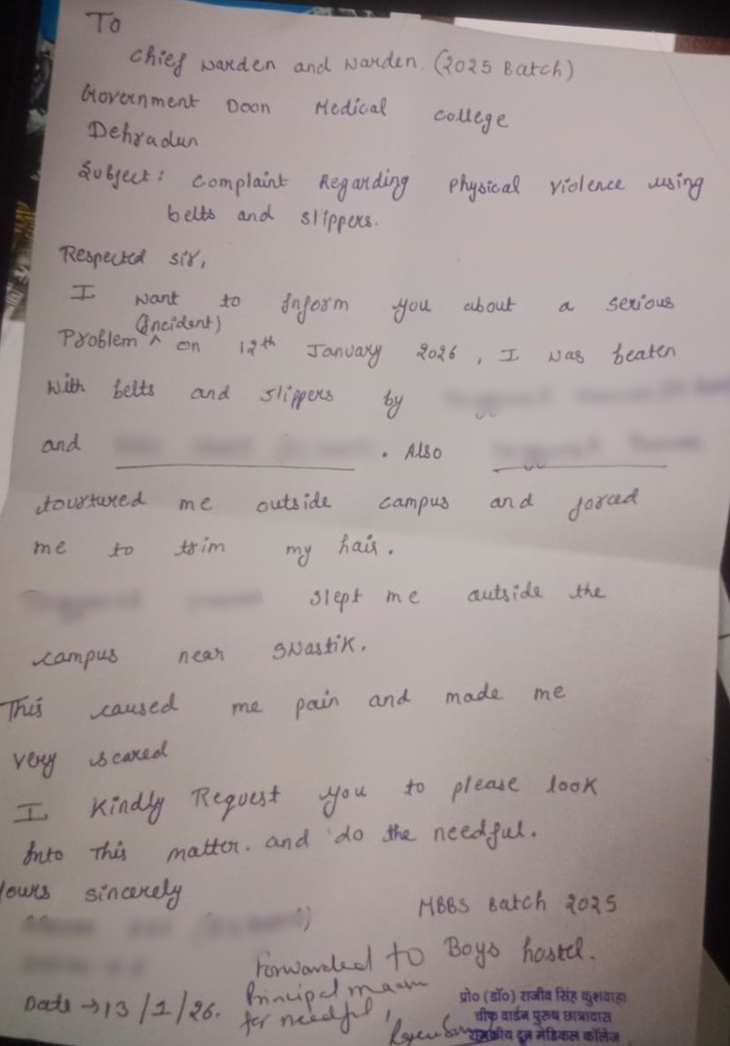 To
Chief Warden and Warden. (2025 Batch)
Government Doon Medical College
Dehradun
Subject: Complaint Regarding Physical violence using
belts and slippers.
Respected Sir,
I want to Inform you about a serious
(Incident)
Problem ^ on 12th January 2026, I was beaten
with belts and slippers by
and . Also
tourtured me outside campus and forced
me to trim my hair.
slept me outside the
campus near SWastiK.
This caused me pain and made me
very scared
I Kindly Request you to please look
Into This matter. and do the needful.
Yours sincerely
MBBS Batch 2025
Forwarded to Boys hostel.
Principal maam
for needful,
Date → 13/1/26.
प्रो० (डॉ०) राजीव सिंह कुशवाहा
चीफ वार्डन पुरुष छात्रावास
राजकीय दून मेडिकल कॉलेज